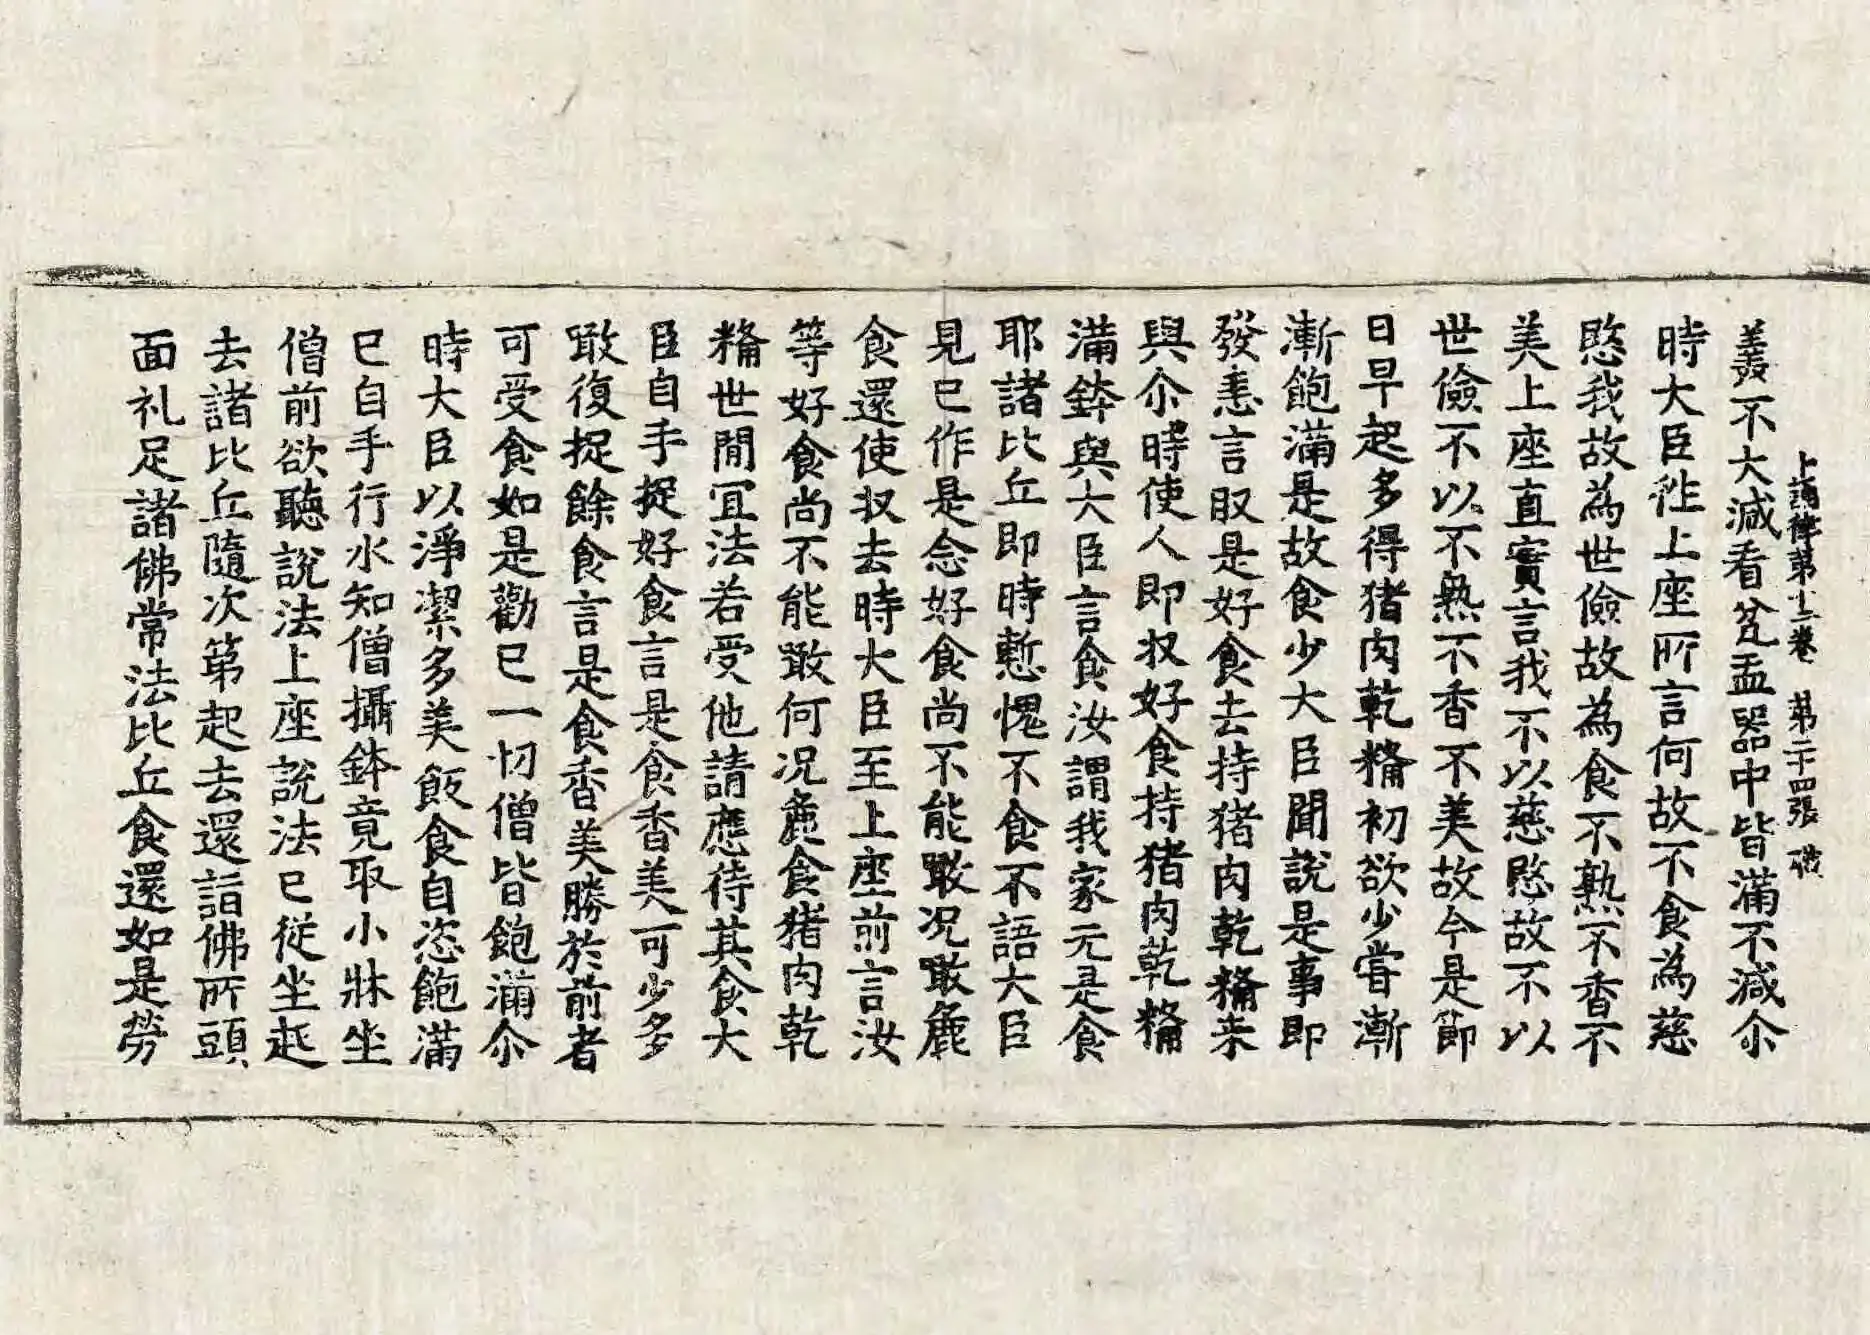 十誦律第十三卷　第二十四張
羹不大減看瓫盂器中皆滿不減尒
時大臣往上座所言何故不食為慈
愍我故為世儉故為食不熟不香不
美上座直實言我不以慈愍故不以
世儉不以不熟不香不美故今是節
日早起多得猪肉乾糒初欲少甞漸
漸飽滿是故食少大臣聞說是事即
發恚言取是好食去持猪肉乾糒来
與尒時使人即取好食持猪肉乾糒
滿鉢與大臣言食汝謂我家元是食
耶諸比丘即時慙愧不食不語大臣
見已作是念好食尚不能噉况噉麁
食還使収去時大臣至上座前言汝
等好食尚不能噉何况麁食猪肉乾
糒世閒冝法若受他請應待其食大
臣自手捉好食言是食香美可少多
噉復捉餘食言是食香美勝於前者
可受食如是勸已一切僧皆飽滿尒
時大臣以淨潔多美飯食自恣飽滿
已自手行水知僧攝鉢竟取小牀坐
僧前欲聽說法上座說法已從坐起
去諸比丘隨次第起去還詣佛所頭
面礼足諸佛常法比丘食還如是勞